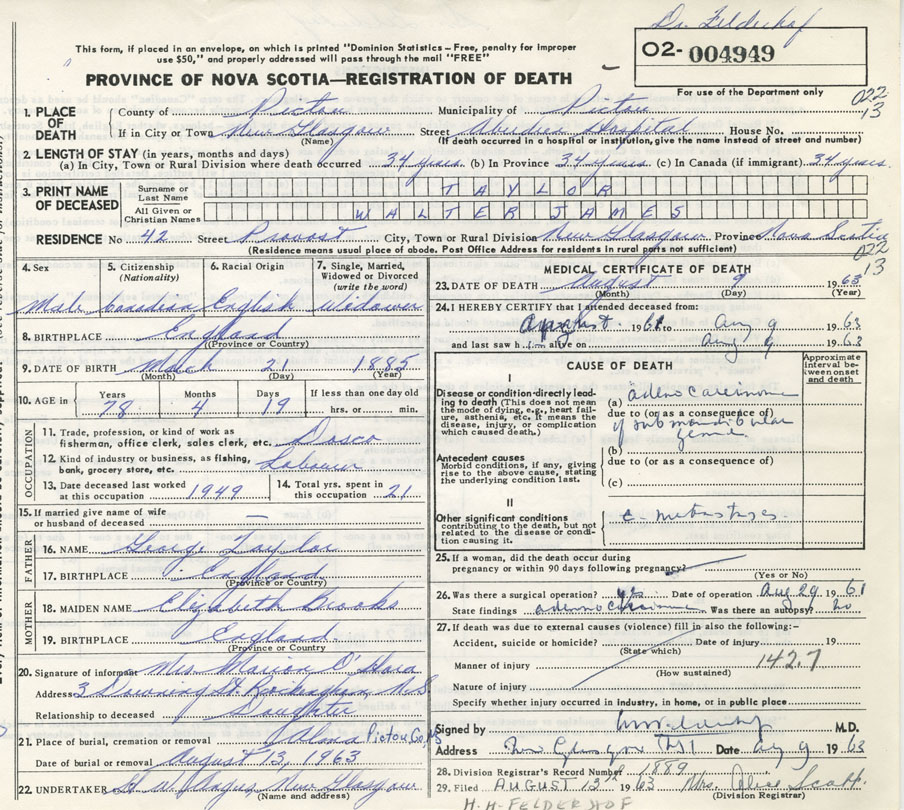 Dr. Felderhof
This form, if placed in an envelope, on which is printed "Dominion Statistics – Free, penalty for improper
use $50," and properly addressed will pass through the mail "FREE"
02- 004949
PROVINCE OF NOVA SCOTIA—REGISTRATION OF DEATH
For use of the Department only
022
13
1. PLACE OF DEATH County of Pictou Municipality of Pictou
If in City or Town New Glasgow Street Aberdeen Hospital House No.
(Name) (If death occurred in a hospital or institution, give the name instead of street and number)
2. LENGTH OF STAY (in years, months and days)
(a) In City, Town or Rural Division where death occurred 34 years. (b) In Province 34 years. (c) In Canada (if immigrant) 34 years.
3. PRINT NAME OF DECEASED
Surname or Last Name TAYLOR
All Given or Christian Names WALTER JAMES
RESIDENCE No 42 Street Provost City, Town or Rural Division New Glasgow Province Nova Scotia
(Residence means usual place of abode. Post Office Address for residents in rural parts not sufficient)
022
13
4. Sex Male
5. Citizenship (Nationality) Canadian
6. Racial Origin English
7. Single, Married, Widowed or Divorced (write the word) Widower
8. BIRTHPLACE England
(Province or Country)
9. DATE OF BIRTH March 21 1885
(Month) (Day) (Year)
10. AGE in Years 78 Months 4 Days 19 If less than one day old hrs. or min.
OCCUPATION
11. Trade, profession, or kind of work as
fisherman, office clerk, sales clerk, etc. Dosco
12. Kind of industry or business, as fishing,
bank, grocery store, etc. Labourer
13. Date deceased last worked at this occupation 1949
14. Total yrs. spent in this occupation 21
15. If married give name of wife
or husband of deceased —
FATHER
16. NAME George Taylor
17. BIRTHPLACE England
(Province or Country)
MOTHER
18. MAIDEN NAME Elizabeth Brooks
19. BIRTHPLACE England
(Province or Country)
20. Signature of informant Mrs. Marion O'Hara
Address 3 Downing St. Rockingham, N.S.
Relationship to deceased Daughter
21. Place of burial, cremation or removal Alma Pictou Co, NS
Date of burial or removal August 13, 1963
22. UNDERTAKER New Glasgow
(Name and address)
MEDICAL CERTIFICATE OF DEATH
23. DATE OF DEATH August 9 1963
(Month) (Day) (Year)
24. I HEREBY CERTIFY that I attended deceased from:
August 1961 to Aug 9 1963
and last saw him alive on Aug 9 1963
CAUSE OF DEATH
Approximate interval between onset and death
I
Disease or condition directly leading to death (This does not mean the mode of dying, e.g., heart failure, asthenia, etc. It means the disease, injury, or complication which caused death.)
(a) adeno carcinoma
due to (or as a consequence of)
of submandibular
(b)
due to (or as a consequence of)
Antecedent causes
Morbid conditions, if any, giving rise to the above cause, stating the underlying condition last.
(c)
II
Other significant conditions
contributing to the death, but not related to the disease or condition causing it.
c metastases
25. If a woman, did the death occur during
pregnancy or within 90 days following pregnancy?
(Yes or No)
26. Was there a surgical operation? yes Date of operation Aug 29 1961
State findings adenocarcinoma Was there an autopsy? no
27. If death was due to external causes (violence) fill in also the following:-
Accident, suicide or homicide? Date of injury 19
(State which)
Manner of injury 142.7
(How sustained)
Nature of injury
Specify whether injury occurred in industry, in home, or in public place
Signed by M.D.
Address New Glasgow Date Aug 9 1963
28. Division Registrar's Record Number 1889
29. Filed AUGUST 13th 1963 Mrs.
(Division Registrar)
H. H. FELDERHOF